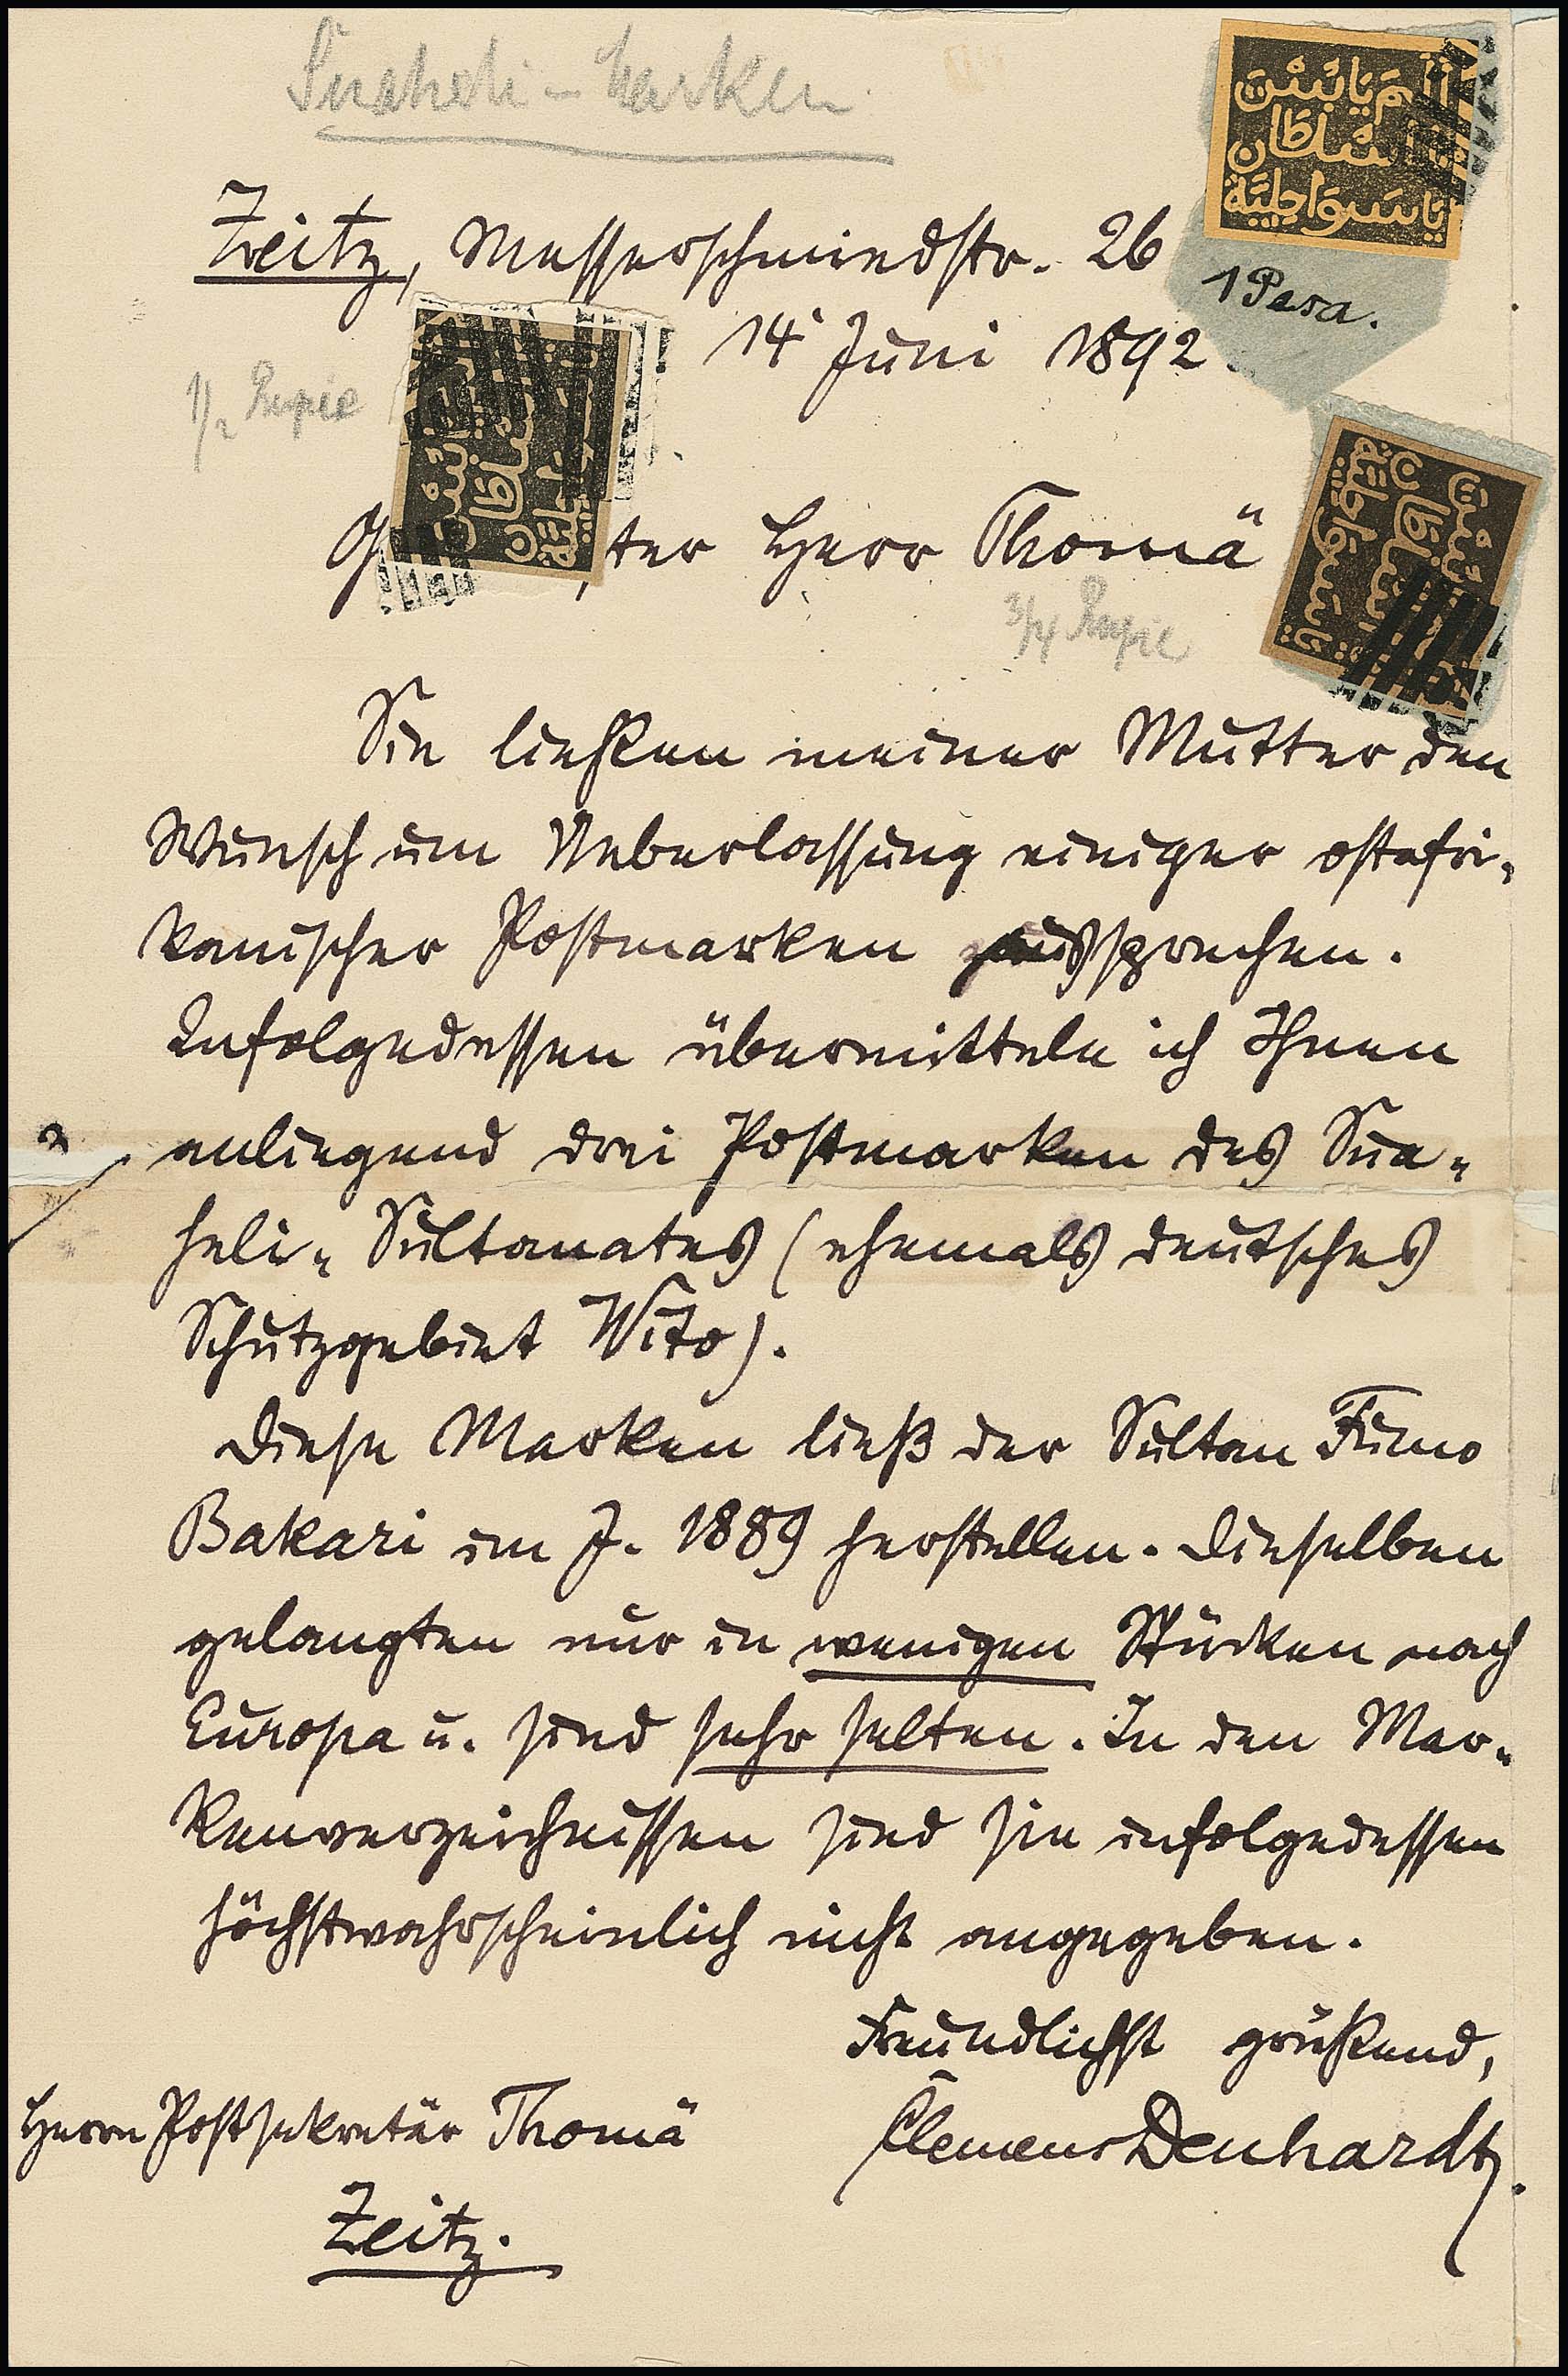 Suaheli-Marken
Zeitz, Messerschmiedstr. 26
1 Pesa.
14. Juni 1892.
1/2 Rupie
G ter Herr Thomä
3/4 Rupie
Sie ließen meiner Mutter den
Wunsch um Ueberlassung einiger ostafri-
kanischer Postmarken aussprechen.
Infolgedessen übermittele ich Ihnen
anliegend drei Postmarken des Sua-
heli-Sultanates (ehemals deutsches
Schutzgebiet Wito).
Diese Marken ließ der Sultan Fumo
Bakari im J. 1889 herstellen. Dieselben
gelangten nur in wenigen Stücken nach
Europa u. sind sehr selten. In den Mar-
kenverzeichnissen sind sie infolgedessen
höchstwahrscheinlich nicht angegeben.
Freundlichst grüßend,
Clemens Denhardt.
Herrn Postsekretär Thomä
Zeitz.